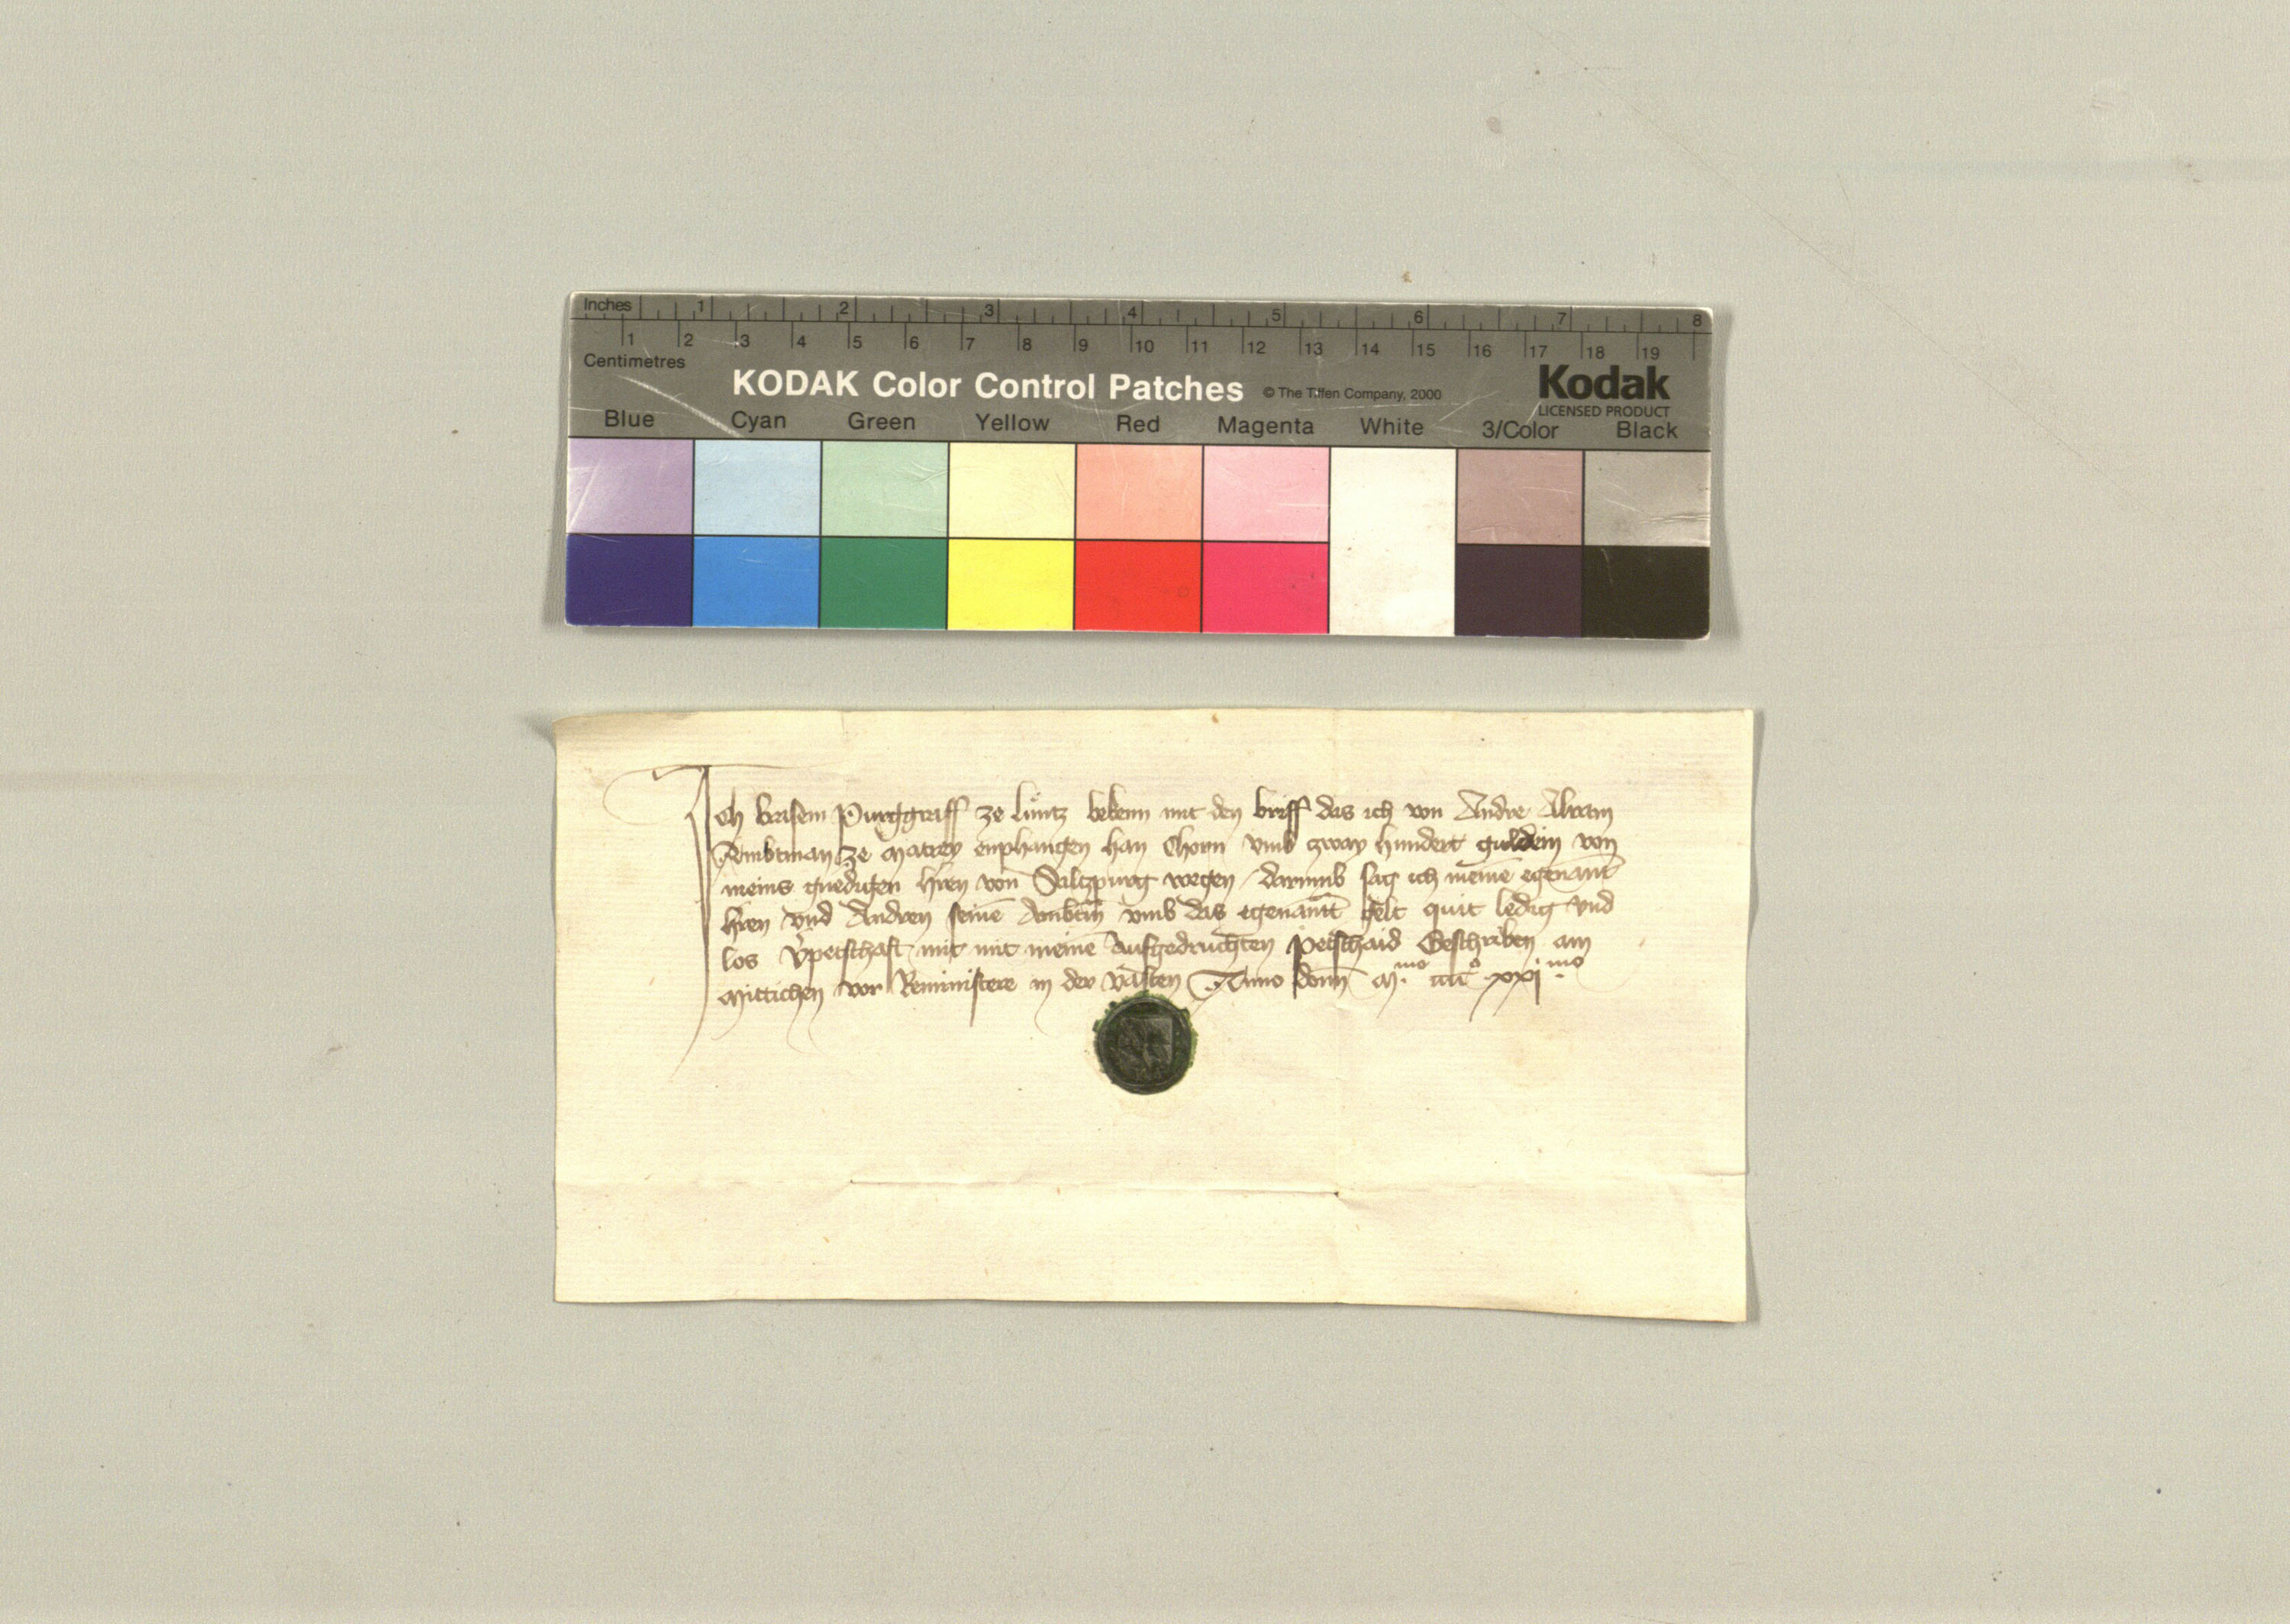 Inches 1 2 3 4 5 6 7 8
1 2 3 4 5 6 7 8 9 10 11 12 13 14 15 16 17 18 19
Centimetres
KODAK Color Control Patches © The Tiffen Company, 2000 Kodak
LICENSED PRODUCT
Blue Cyan Green Yellow Red Magenta White 3/Color Black
Ich Erasem Purggraff ze Lüntz bekenn mit den briff das ich von Andre Abram
Ambtman ze Matrey enphangen han Chorn vmb zway hundert guldein von
meins gnedigen hren von Saltzpurg wegen darumb sag ich meinē egenant̄
hren vnd Andren seinē Ambtm̄ vmb das egenant̄ gelt quit ledig vnd
los petschaft mit mit meinē aufgedruchten petschaid Geschriben am
Mittichen vor Reministere in der vasten Anno domī M.mo iiiic xxjmo